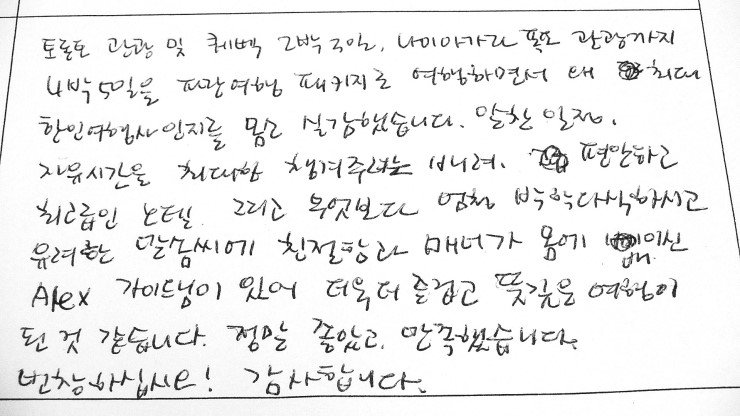 토론토 관광 및 퀘벡 2박 3일, 나이아가라 폭포 관광까지
4박5일을 파란여행 패키지로 여행하면서 왜 최대
한인여행사인지를 몸으로 실감했습니다. 알찬 일정,
자유시간을 최대한 챙겨주려는 배려, 편안하고
최고급인 호텔. 그리고 무엇보다 엄청 박학다식하시고
유려한 말솜씨에 친절함과 매너가 몸에 배이신
Alex 가이드님이 있어 더욱더 즐겁고 뜻깊은 여행이
된 것 같습니다. 정말 좋았고, 만족했습니다.
번창하십시요! 감사합니다.